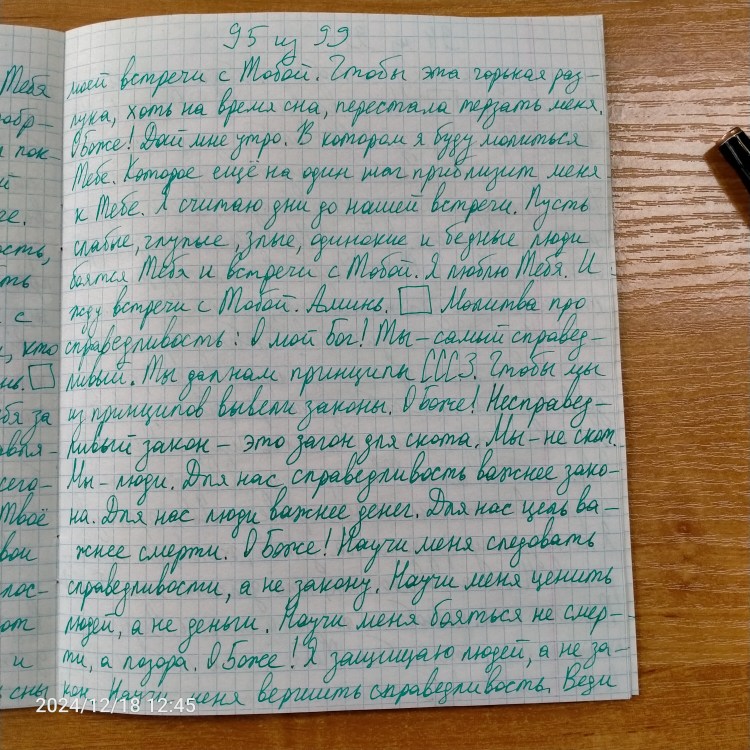 95 из 99
моей встречи с Тобой. Чтобы эта горькая раз-
лука, хоть на время сна, перестала терзать меня.
О Боже! Дай мне утро. В котором я буду молиться
Тебе. Которое ещё на один шаг приблизит меня
к Тебе. Я считаю дни до нашей встречи. Пусть
слабые, глупые, злые, одинокие и бедные люди
боятся Тебя и встречи с Тобой. Я люблю Тебя. И
жду встречи с Тобой. Аминь. Молитва про
справедливость: О мой Бог! Ты - самый справед-
ливый. Ты дал нам принципы СССЗ. Чтобы мы
из принципов вывели законы. О Боже! Несправед-
ливый закон - это загон для скота. Мы - не скот.
Мы - люди. Для нас справедливость важнее зако-
на. Для нас люди важнее денег. Для нас цель ва-
жнее смерти. О Боже! Научи меня следовать
справедливости, а не закону. Научи меня ценить
людей, а не деньги. Научи меня бояться не смер-
ти, а позора. О Боже! Я защищаю людей, а не за-
кон. Научи меня вершить справедливость. Веди
Тебя
с
кто
за
Твоё
и
сны
2024/12/18 12:45